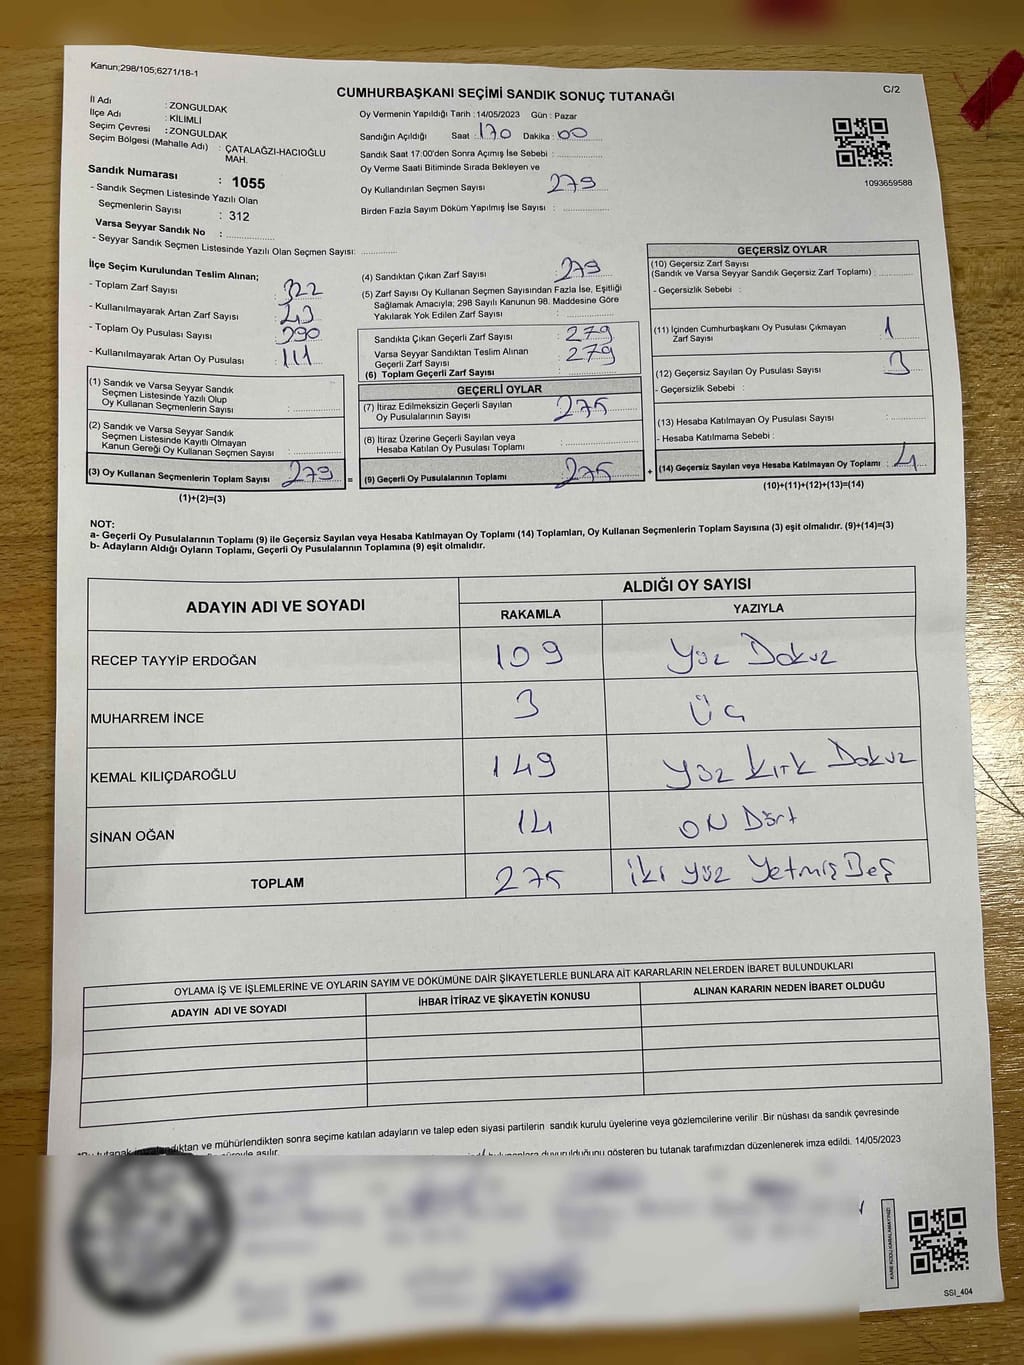 Kanun;298/105;6271/18-1
CUMHURBAŞKANI SEÇİMİ SANDIK SONUÇ TUTANAĞI
C/2
İl Adı : ZONGULDAK
İlçe Adı : KİLİMLİ
Seçim Çevresi : ZONGULDAK
Seçim Bölgesi (Mahalle Adı) : ÇATALAĞZI-HACIOĞLU MAH.
Sandık Numarası : 1055
- Sandık Seçmen Listesinde Yazılı Olan
Seçmenlerin Sayısı : 312
Varsa Seyyar Sandık No :
- Seyyar Sandık Seçmen Listesinde Yazılı Olan Seçmen Sayısı:
Oy Vermenin Yapıldığı Tarih : 14/05/2023 Gün : Pazar
Sandığın Açıldığı Saat : 170 Dakika : 00
Sandık Saat 17:00'den Sonra Açımış İse Sebebi :
Oy Verme Saati Bitiminde Sırada Bekleyen ve
Oy Kullandırılan Seçmen Sayısı 279
Birden Fazla Sayım Döküm Yapılmış İse Sayısı :
1093659588
İlçe Seçim Kurulundan Teslim Alınan;
- Toplam Zarf Sayısı : 322
- Kullanılmayarak Artan Zarf Sayısı : 43
- Toplam Oy Pusulası Sayısı : 390
- Kullanılmayarak Artan Oy Pusulası : 111
(1) Sandık ve Varsa Seyyar Sandık
Seçmen Listesinde Yazılı Olup
Oy Kullanan Seçmenlerin Sayısı :
(2) Sandık ve Varsa Seyyar Sandık
Seçmen Listesinde Kayıtlı Olmayan
Kanun Gereği Oy Kullanan Seçmen Sayısı :
(3) Oy Kullanan Seçmenlerin Toplam Sayısı : 279
(1)+(2)=(3)
(4) Sandıktan Çıkan Zarf Sayısı : 279
(5) Zarf Sayısı Oy Kullanan Seçmen Sayısından Fazla İse, Eşitliği
Sağlamak Amacıyla; 298 Sayılı Kanunun 98. Maddesine Göre
Yakılarak Yok Edilen Zarf Sayısı :
Sandıkta Çıkan Geçerli Zarf Sayısı : 279
Varsa Seyyar Sandıktan Teslim Alınan
Geçerli Zarf Sayısı : 279
(6) Toplam Geçerli Zarf Sayısı :
GEÇERLİ OYLAR
(7) İtiraz Edilmeksizin Geçerli Sayılan
Oy Pusulalarının Sayısı : 275
(8) İtiraz Üzerine Geçerli Sayılan veya
Hesaba Katılan Oy Pusulası Toplamı :
= (9) Geçerli Oy Pusulalarının Toplamı : 275
GEÇERSİZ OYLAR
(10) Geçersiz Zarf Sayısı
(Sandık ve Varsa Seyyar Sandık Geçersiz Zarf Toplamı) :
- Geçersizlik Sebebi :
(11) İçinden Cumhurbaşkanı Oy Pusulası Çıkmayan
Zarf Sayısı : 1
(12) Geçersiz Sayılan Oy Pusulası Sayısı : 3
- Geçersizlik Sebebi :
(13) Hesaba Katılmayan Oy Pusulası Sayısı :
- Hesaba Katılmama Sebebi :
+ (14) Geçersiz Sayılan veya Hesaba Katılmayan Oy Toplamı : 4
(10)+(11)+(12)+(13)=(14)
NOT:
a- Geçerli Oy Pusulalarının Toplamı (9) ile Geçersiz Sayılan veya Hesaba Katılmayan Oy Toplamı (14) Toplamları, Oy Kullanan Seçmenlerin Toplam Sayısına (3) eşit olmalıdır. (9)+(14)=(3)
b- Adayların Aldığı Oyların Toplamı, Geçerli Oy Pusulalarının Toplamına (9) eşit olmalıdır.
ADAYIN ADI VE SOYADI ALDIĞI OY SAYISI
RAKAMLA YAZIYLA
RECEP TAYYİP ERDOĞAN 109 Yüz Dokuz
MUHARREM İNCE 3 Üç
KEMAL KILIÇDAROĞLU 149 Yüz Kırk Dokuz
SİNAN OĞAN 14 ON Dört
TOPLAM 275 İki Yüz Yetmiş Beş
OYLAMA İŞ VE İŞLEMLERİNE VE OYLARIN SAYIM VE DÖKÜMÜNE DAİR ŞİKAYETLERLE BUNLARA AİT KARARLARIN NELERDEN İBARET BULUNDUKLARI
ADAYIN ADI VE SOYADI İHBAR İTİRAZ VE ŞİKAYETİN KONUSU ALINAN KARARIN NEDEN İBARET OLDUĞU
ve mühürlendikten sonra seçime katılan adayların ve talep eden siyasi partilerin sandık kurulu üyelerine veya gözlemcilerine verilir .Bir nüshası da sandık çevresinde
asılır.
duyurulduğunu gösteren bu tutanak tarafımızdan düzenlenerek imza edildi. 14/05/2023
KARE KODU KARALAMAYINIZ!
SSI_404